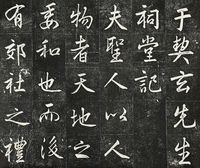 于契玄先生
祠堂記
夫聖人以人
物者天地之
委和也而後
有郊社之禮